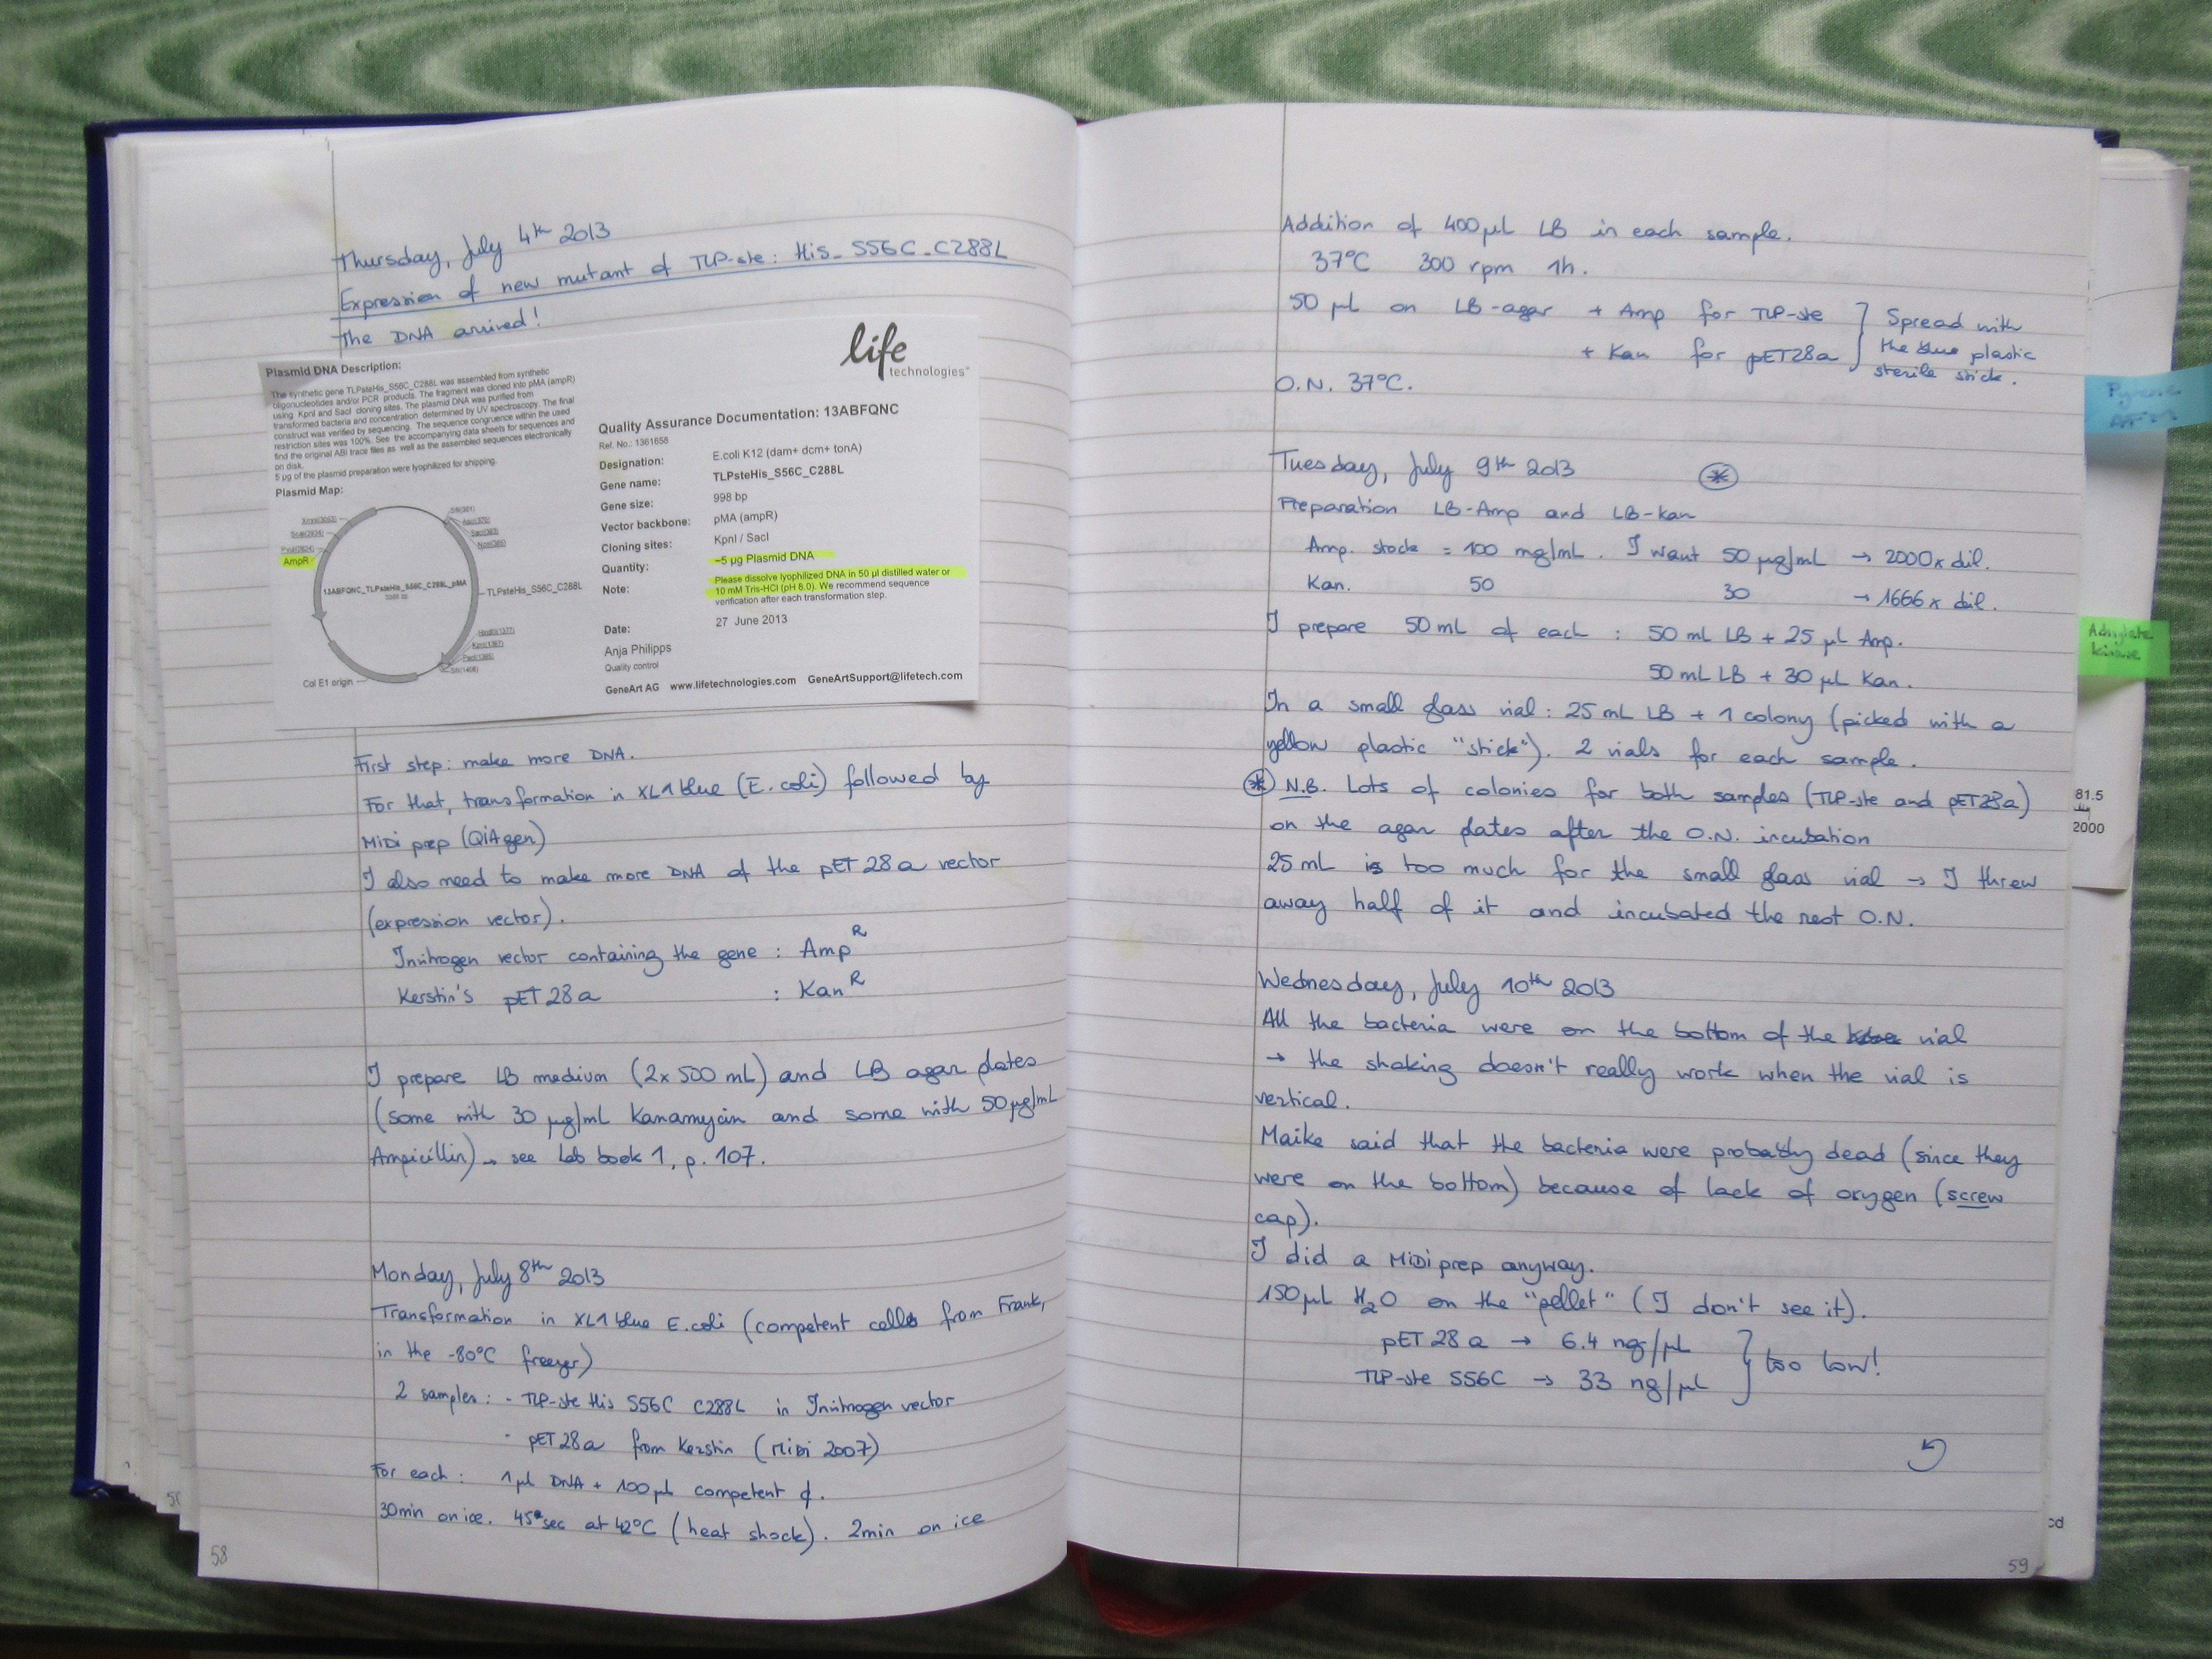 Thursday, July 4th 2013
Expression of new mutant of TLP-ste: His_S56C_C288L
The DNA arrived!
Plasmid DNA Description:
The synthetic gene TLPsteHis_S56C_C288L was assembled from synthetic
oligonucleotides and/or PCR products. The fragment was cloned into pMA (ampR)
using KpnI and SacI cloning sites. The plasmid DNA was purified from
transformed bacteria and concentration determined by UV spectroscopy. The final
construct was verified by sequencing. The sequence congruence within the used
restriction sites was 100%. See the accompanying data sheets for sequences and
find the original ABI trace files as well as the assembled sequences electronically
on disk.
5 µg of the plasmid preparation were lyophilized for shipping.
Plasmid Map:
AmpR
13ABFQNC_TLPsteHis_S56C_C288L_pMA
TLPsteHis_S56C_C288L
HindIII(1377)
KpnI(1387)
Col E1 origin
life
technologies
Quality Assurance Documentation: 13ABFQNC
Ref. No.: 1361658
Designation: E.coli K12 (dam+ dcm+ tonA)
Gene name: TLPsteHis_S56C_C288L
Gene size: 998 bp
Vector backbone: pMA (ampR)
Cloning sites: KpnI / SacI
Quantity: ~5 µg Plasmid DNA
Note: Please dissolve lyophilized DNA in 50 µl distilled water or
10 mM Tris-HCl (pH 8.0). We recommend sequence
verification after each transformation step.
Date: 27 June 2013
Anja Philipps
Quality control
GeneArt AG www.lifetechnologies.com GeneArtSupport@lifetech.com
First step: make more DNA.
For that, transformation in XL1 blue (E. coli) followed by
MiDi prep (QiAgen)
I also need to make more DNA of the pET 28 a vector
(expression vector).
Invitrogen vector containing the gene : Amp R
Kerstin's pET 28 a : Kan R
I prepare LB medium (2x 500 mL) and LB agar plates
(some with 30 µg/mL Kanamycin and some with 50 µg/mL
Ampicillin) → see Lab book 1, p. 107.
Monday, July 8th 2013
Transformation in XL1 blue E.coli (competent cells from Frank,
in the -80°C freezer)
2 samples : - TLP-ste His S56C C288L in Invitrogen vector
- pET 28 a from Kerstin (MiDi 2007)
For each : 1 µl DNA + 100 µl competent ¢.
30min on ice. 45 sec at 42°C (heat shock). 2min on ice
58
Addition of 400 µL LB in each sample.
37°C 300 rpm 1h.
50 µL on LB-agar + Amp for TLP-ste } Spread with
+ Kan for pET28a } the blue plastic
sterile stick.
O.N. 37°C.
Tuesday, July 9th 2013 *
Preparation LB-Amp and LB-Kan
Amp. stock = 100 mg/mL. I want 50 µg/mL → 2000x dil.
Kan. 50 30 → 1666x dil.
I prepare 50 mL of each : 50 mL LB + 25 µL Amp.
50 mL LB + 30 µL Kan.
In a small glass vial : 25 mL LB + 1 colony (picked with a
yellow plastic "stick"). 2 vials for each sample.
* N.B. Lots of colonies for both samples (TLP-ste and pET28a)
on the agar plates after the O.N. incubation
25 mL is too much for the small glass vial → I threw
away half of it and incubated the rest O.N.
Wednesday, July 10th 2013
All the bacteria were on the bottom of the vial
→ the shaking doesn't really work when the vial is
vertical.
Maike said that the bacteria were probably dead (since they
were on the bottom) because of lack of oxygen (screw
cap).
I did a MiDi prep anyway.
150 µL H2O on the "pellet" (I don't see it).
pET 28 a → 6.4 ng/µL } too low!
TLP-ste S56C → 33 ng/µL
59
Adenylate
kinase
81.5
2000
cd